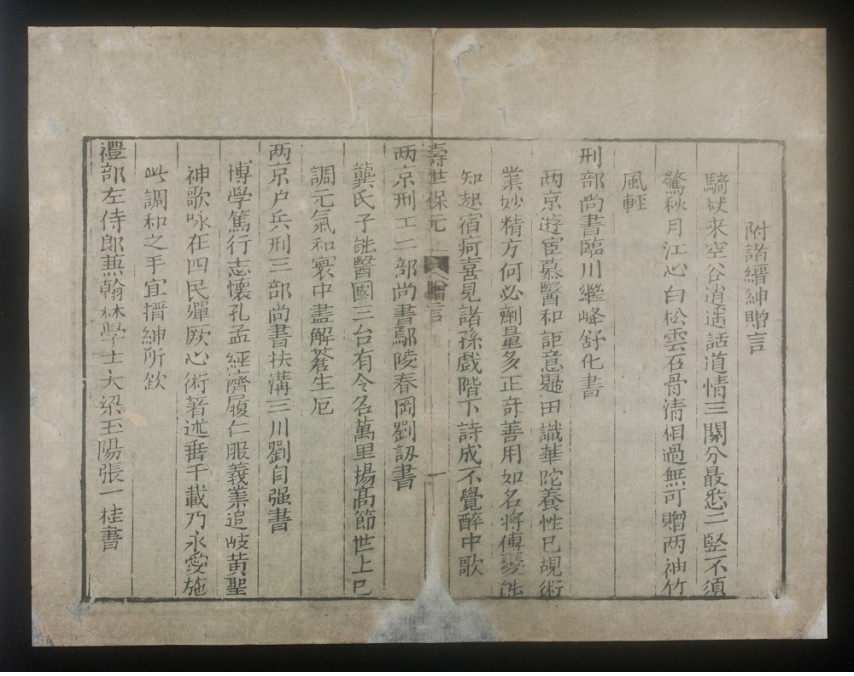 附諸縉紳贈言
騎犬來空谷逍遙話道情三關分最悉二竪不須
驚秋月江心白松雲石骨清相過無可贈两袖竹
風輕
刑部尚書臨川繼峰舒化書
两京遊宦慕醫和詎意龍田識華陀養性已規術
業妙精方何必劑量多正竒善用如名將傳變能
知起宿疴喜見諸孫戲階下詩成不覺醉中歌
壽世保元 贈言 一
两京刑工二部尚書鄢陵春岡劉訒書
龔氏子能醫國三台有令名萬里揚高節世上已
調元氣和寰中盡解蒼生厄
两京户兵刑三部尚書扶溝三川劉自强書
博學篤行志懷孔孟經濟履仁服義業追岐黄聖
神歌咏在四民殫厥心術著述垂千載乃永愛施
此調和之手宜搢紳所欽
禮部左侍郎兼翰林學士大梁玉陽張一桂書